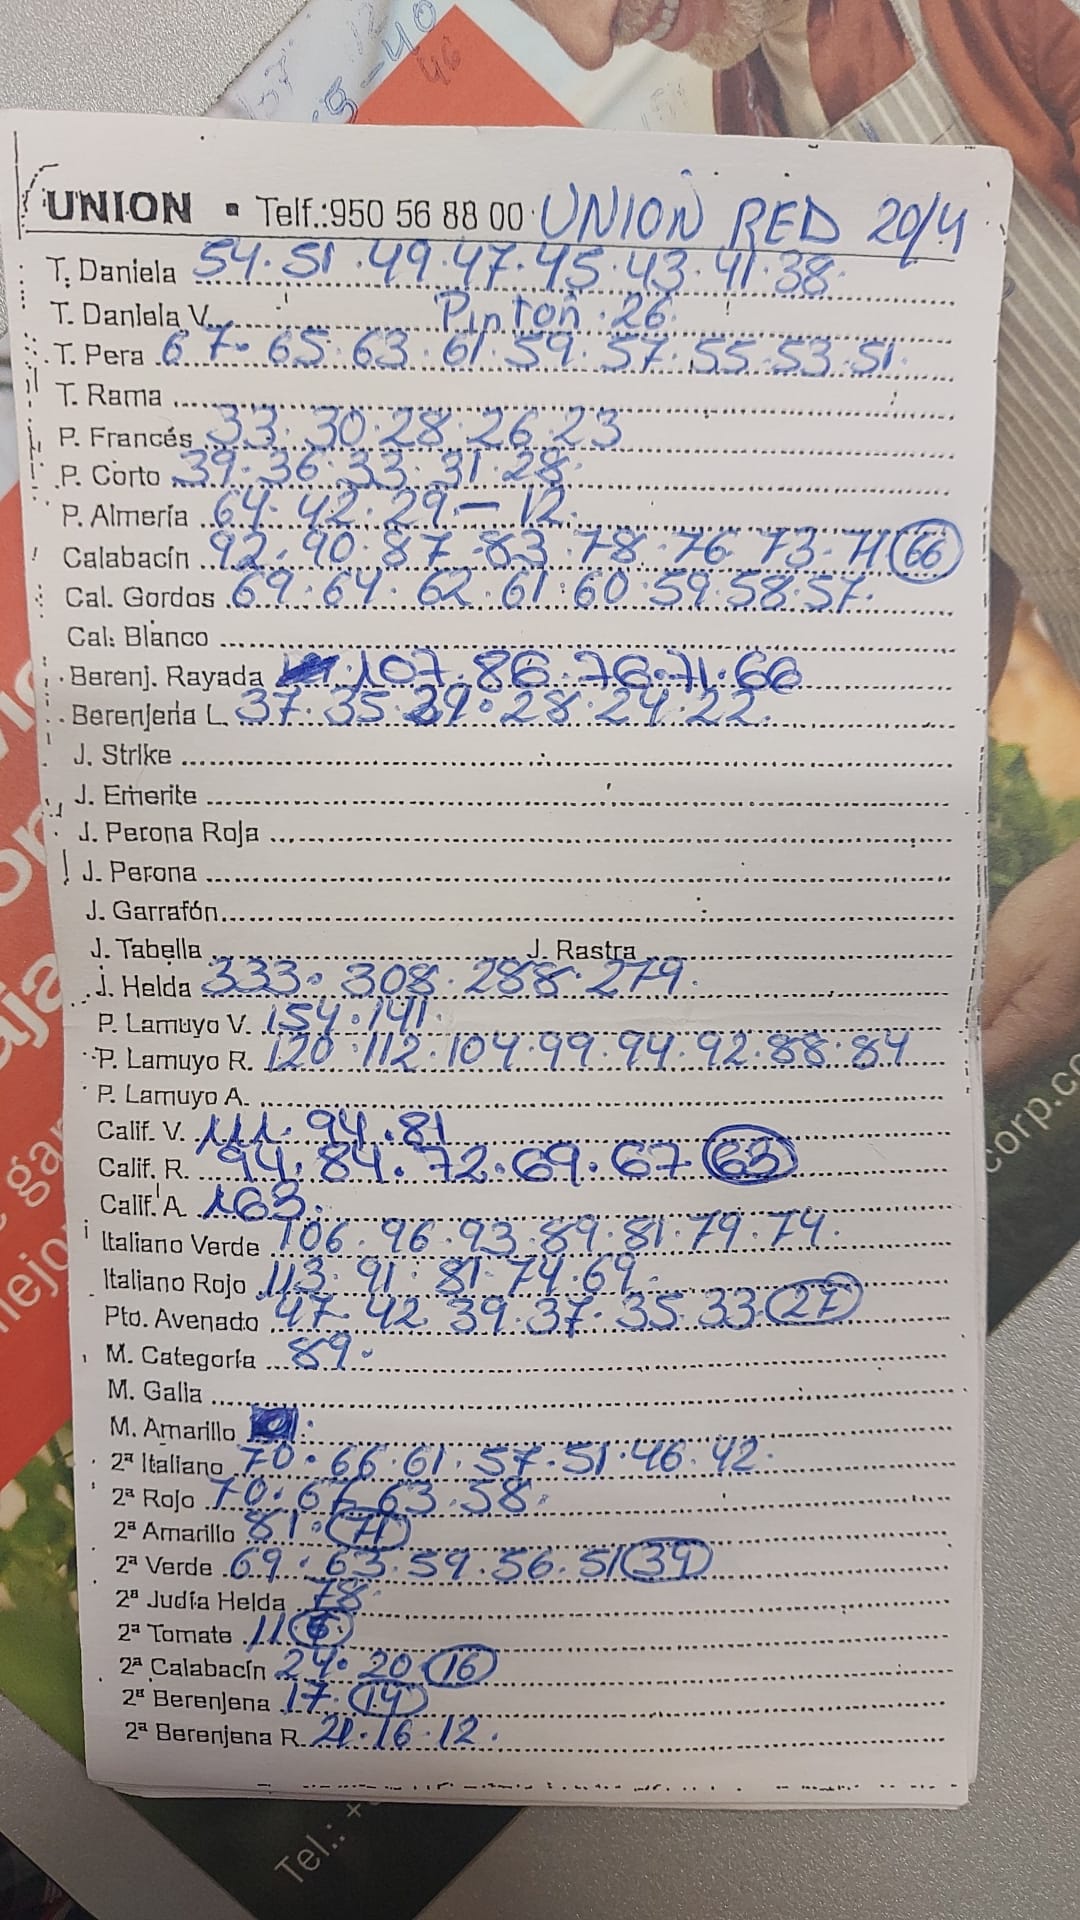 57
12
9-40
46
UNION ▪ Telf.:950 56 88 00 UNION RED 20/4
T. Daniela 54.51.49.47.45.43.41.38.
T. Daniela V. Pinton.26.
T. Pera 67.65.63.61.59.57.55.53.51.
T. Rama
P. Francés 33.30.28.26.23
P. Corto 39.36.33.31.28.
P. Almería 64.42.29-12.
Calabacín 92.90.87.83.78.76.73.71 66
Cal. Gordos 69.64.62.61.60.59.58.57.
Cal. Blanco
Berenj. Rayada 107.86.76.71.66
Berenjena L. 37.35.29.28.24.22.
J. Strike
J. Emerite
J. Perona Roja
J. Perona
J. Garrafón
J. Tabella J. Rastra
J. Helda 333.308.288.279.
P. Lamuyo V. 154.141.
P. Lamuyo R. 120.112.104.99.94.92.88.84
P. Lamuyo A.
Calif. V. 111.94.81
Calif. R. 94.84.72.69.67 63
Calif. A. 163.
Italiano Verde 106.96.93.89.81.79.74.
Italiano Rojo 113.91.81.74.69.
Pto. Avenado 47.42.39.37.35.33 27
M. Categoría 89.
M. Galia
M. Amarillo
2ª Italiano 70.66.61.57.51.46.42.
2ª Rojo 70.67.63.58.
2ª Amarillo 81.71
2ª Verde 69.63.59.56.51 39
2ª Judía Helda 78.
2ª Tomate 11
2ª Calabacín 24.20 16
2ª Berenjena 17.14
2ª Berenjena R. 21.16.12.
corp.c
Tel.: +